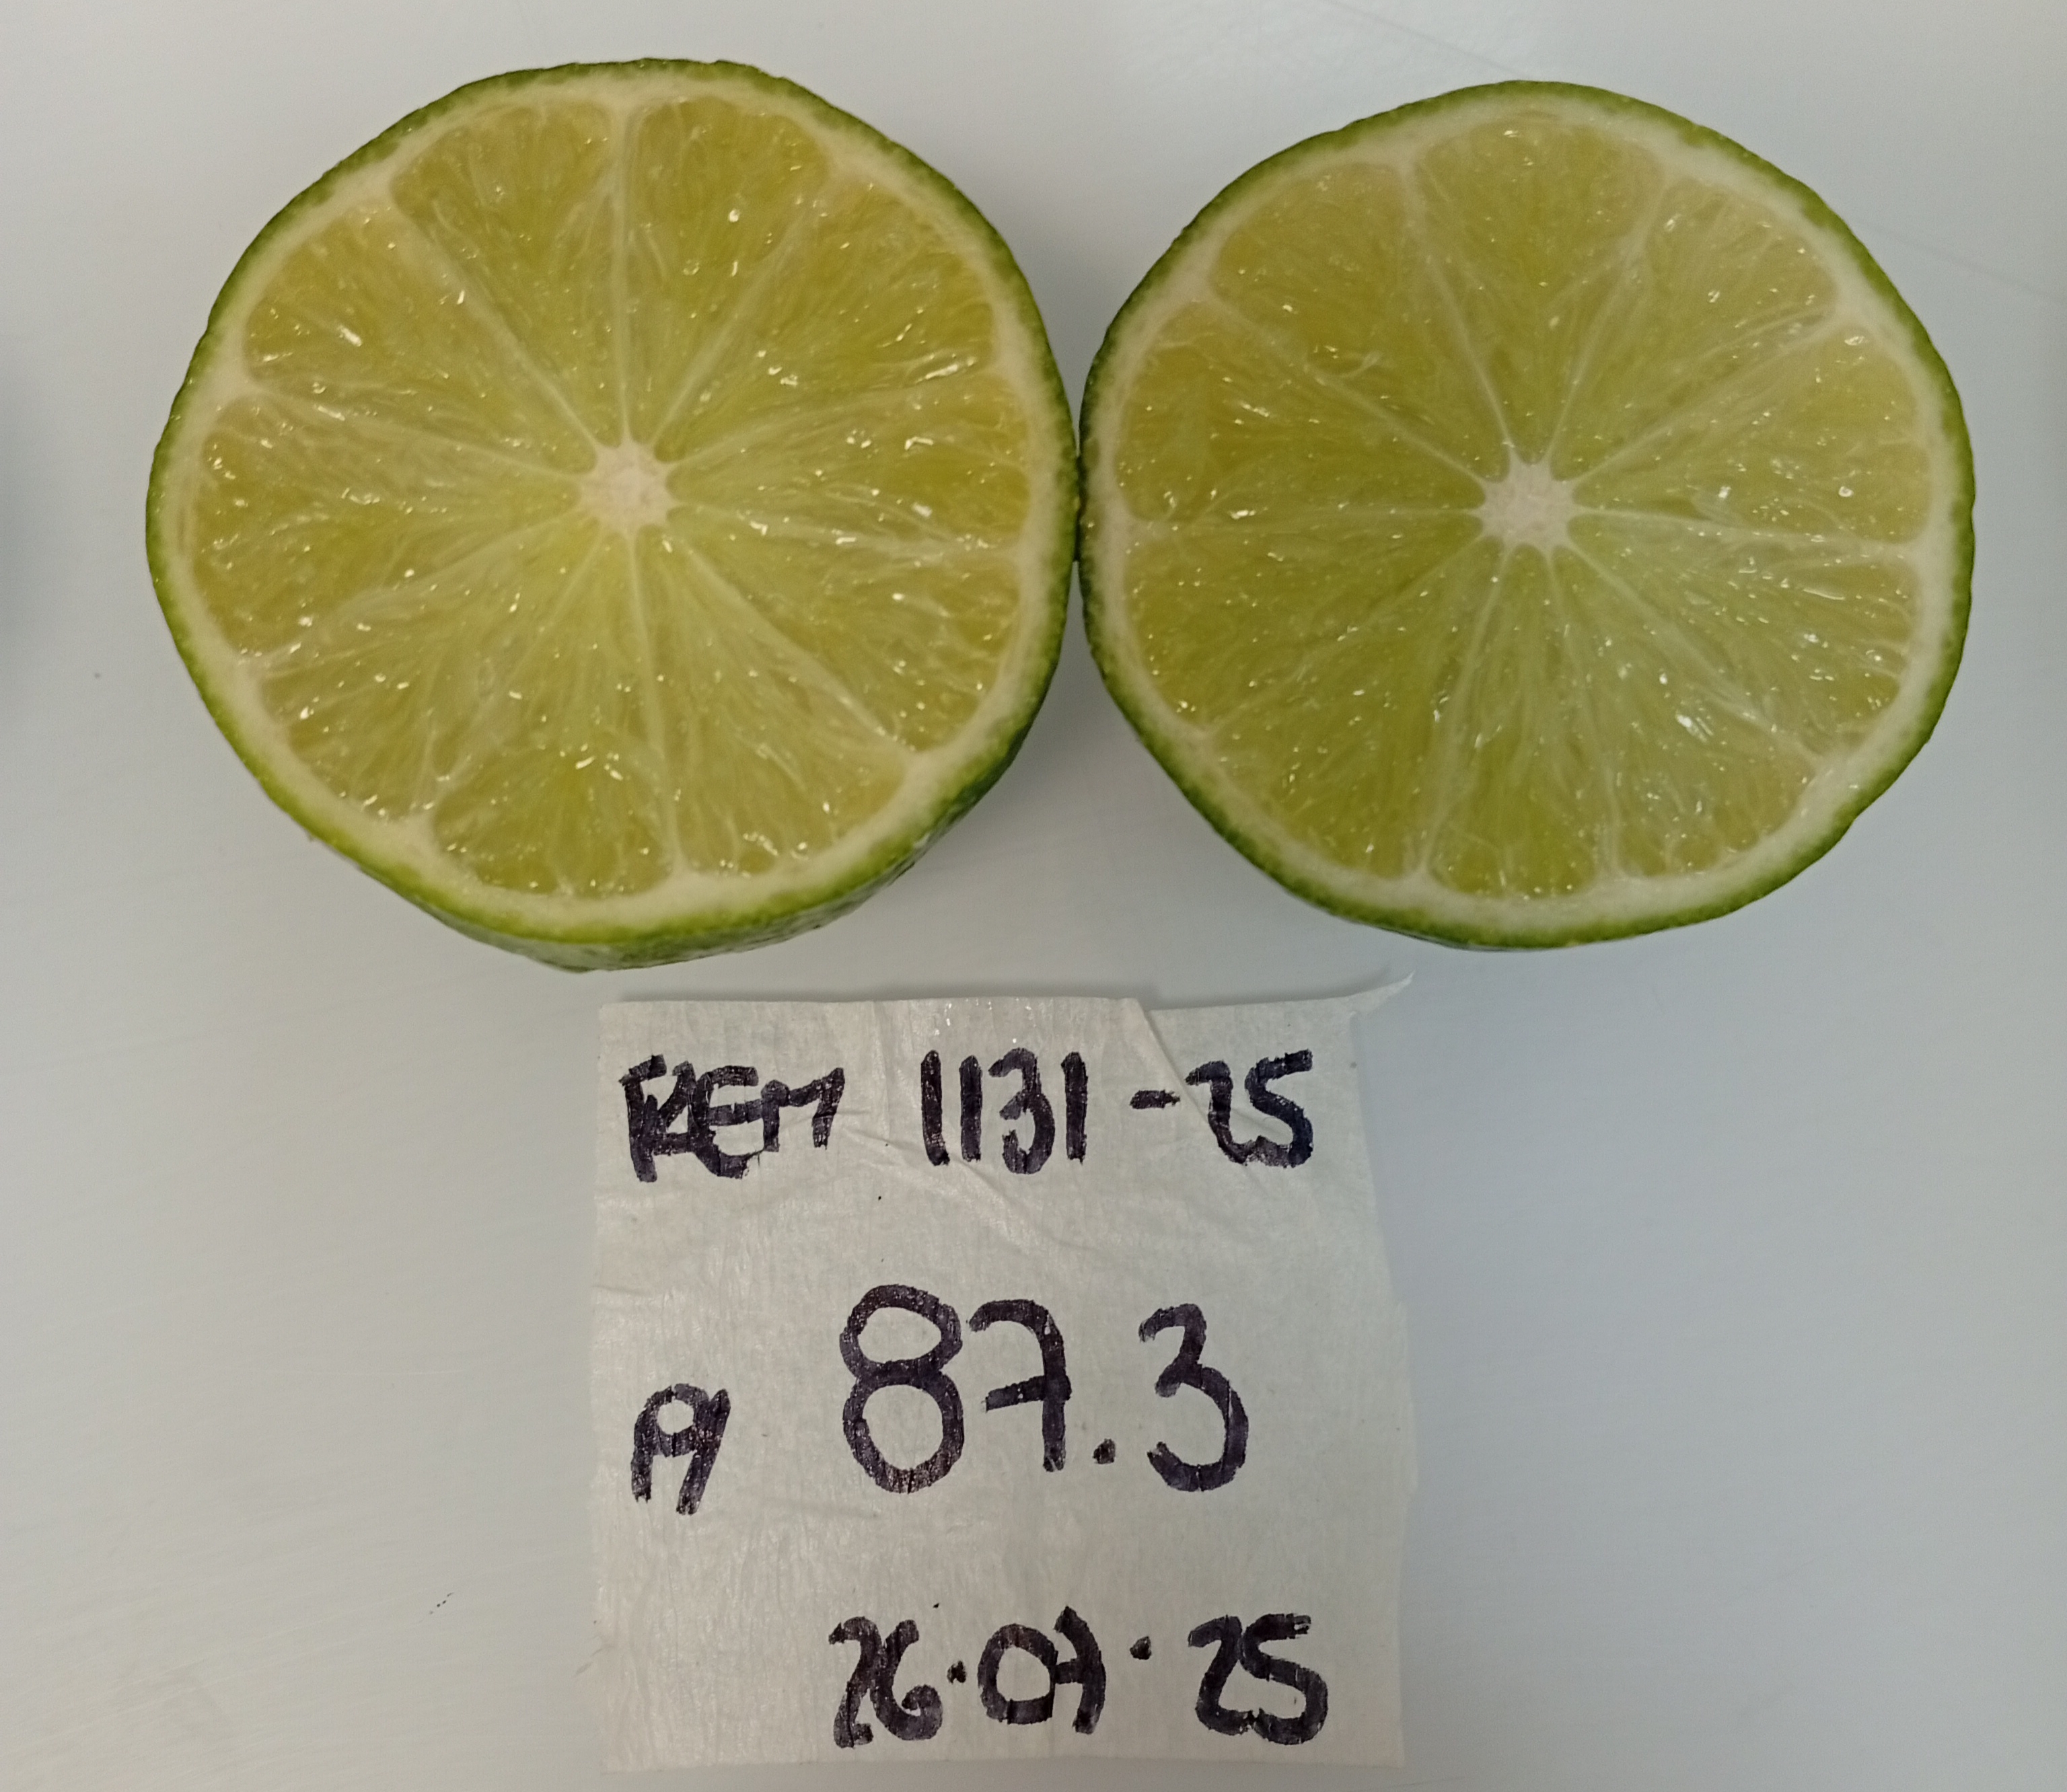 REM 1131-25
A 87.3
26.07.25